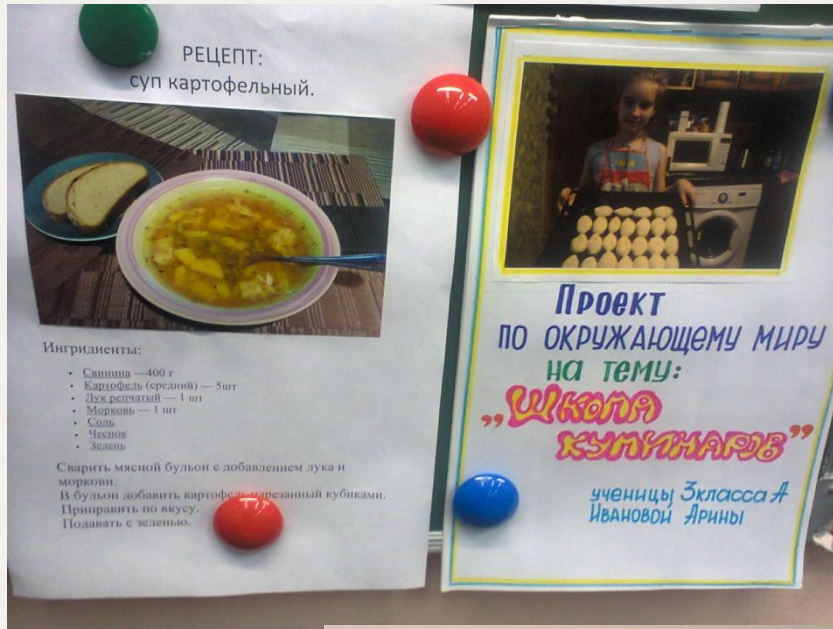 РЕЦЕПТ:
суп картофельный.
Ингридиенты:
Свинина —400 г
Картофель (средний) — 5шт
Лук репчатый — 1 шт
Морковь — 1 шт
Соль
Чеснок
Зелень
Сварить мясной бульон с добавлением лука и
моркови.
В бульон добавить картофель нарезанный кубиками.
Приправить по вкусу.
Подавать с зеленью.
Проект
по окружающему миру
на тему:
„Школа
кулинаров”
ученицы 3класса А
Ивановой Арины